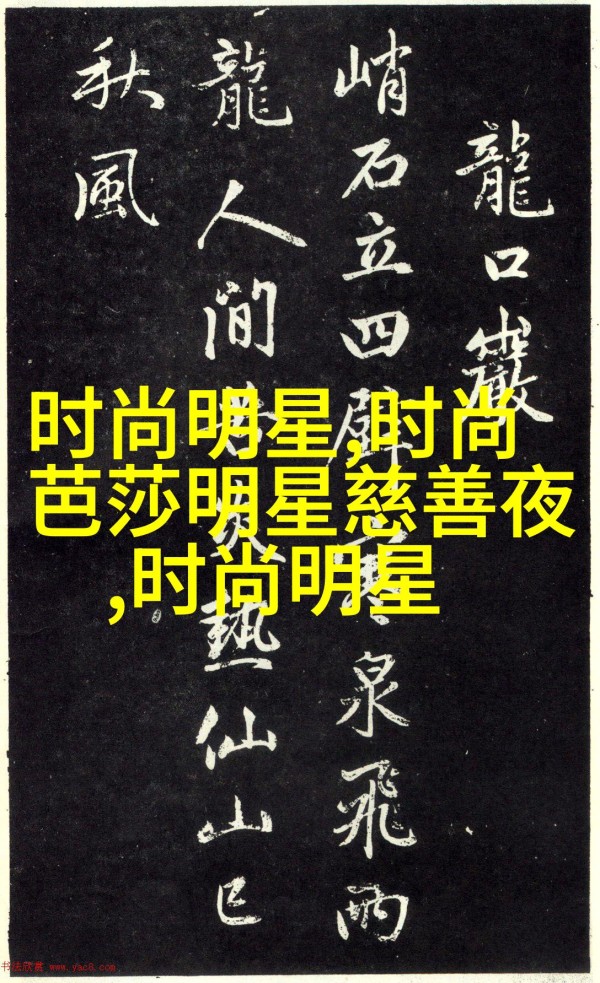 龍口巖
峭石立四壁寒泉飛兩
龍人間苦炎熱仙山已
秋風
时尚明星,时尚
芭莎明星慈善夜
,时尚明星
书法欣赏 www.yac8.com